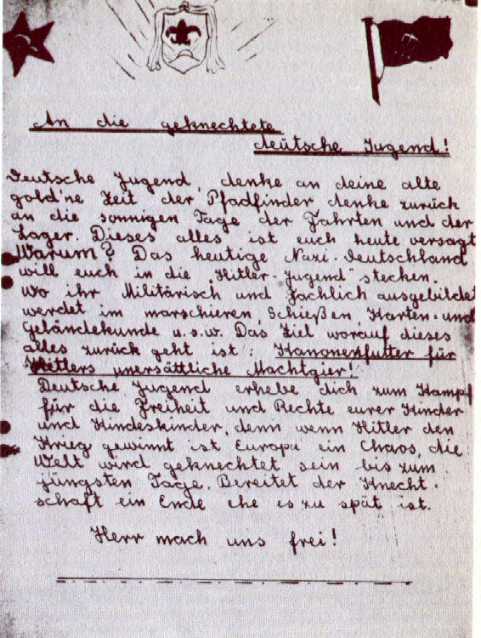 An die geknechtete
deutsche Jugend!
Deutsche Jugend, denke an deine alte
gold'ne Zeit der Pfadfinder denke zurück
an die sonnigen Tage der Fahrten und der
Lager. Dieses alles ist euch heute versagt
Warum? Das heutige Nazi-Deutschland
will euch in die "Hitler-Jugend" stecken.
wo ihr Militärisch und fachlich ausgebildet
werdet im marschieren, Schießen, Karten- und
Geländekunde u.s.w. Das Ziel worauf dieses
alles zurück geht ist: Kanonenfutter für
Hitlers unersättliche Machtgier!
Deutsche Jugend erhebe dich zum Kampf
für die Freiheit und Rechte eurer Kinder
und Kindeskinder, denn wenn Hitler den
Krieg gewinnt ist Europa ein Chaos, die
Welt wird geknechtet sein bis zum
jüngsten Tage. Bereitet der Knecht-
schaft ein Ende ehe es zu spät ist.
Herr mach uns frei!